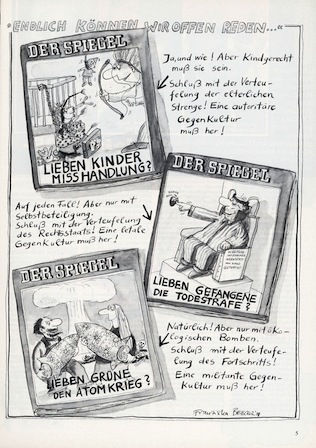 „ENDLICH KÖNNEN WIR OFFEN REDEN..."
DER SPIEGEL
LIEBEN KINDER
MISSHANDLUNG?
Ja, und wie! Aber Kindgerecht
muß sie sein.
Schluß mit der Verteu-
felung der elterlichen
Strenge! Eine autoritäre
Gegenkultur
muß her!
Auf jeden Fall! Aber nur mit
Selbstbeteiligung.
Schluß mit der Verteufelung
des Rechtsstaats! Eine letale
Gegenkultur muß her!
DER SPIEGEL
LIEBEN GEFANGENE
DIE TODESTRAFE?
DER SPIEGEL
LIEBEN GRÜNE
DEN ATOMKRIEG?
Natürlich! Aber nur mit öko-
logischen Bomben.
Schluß mit der Verteufe-
lung des Fortschritts!
Eine militante Gegen-
kultur muß her!
Franziska Becker
5